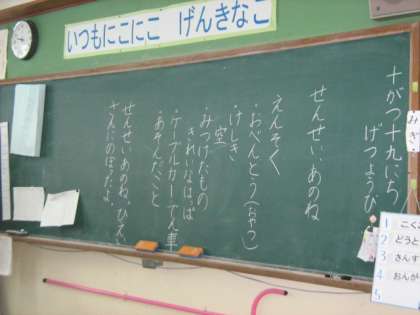 いつもにこにこ　げんきなこ
十がつ十九にち
げつようび
せんせい、あのね
えんそく
・おべんとう(おやつ)
・けしき
空
・みつけたもの
きれいなはっぱ
・ケーブルカー でん車
・あそんだこと
せんせい、あのね、ひえい
さんにのぼったよ。
みぎ
1 こく
2 どうと
3 さんす
4 おんが
5